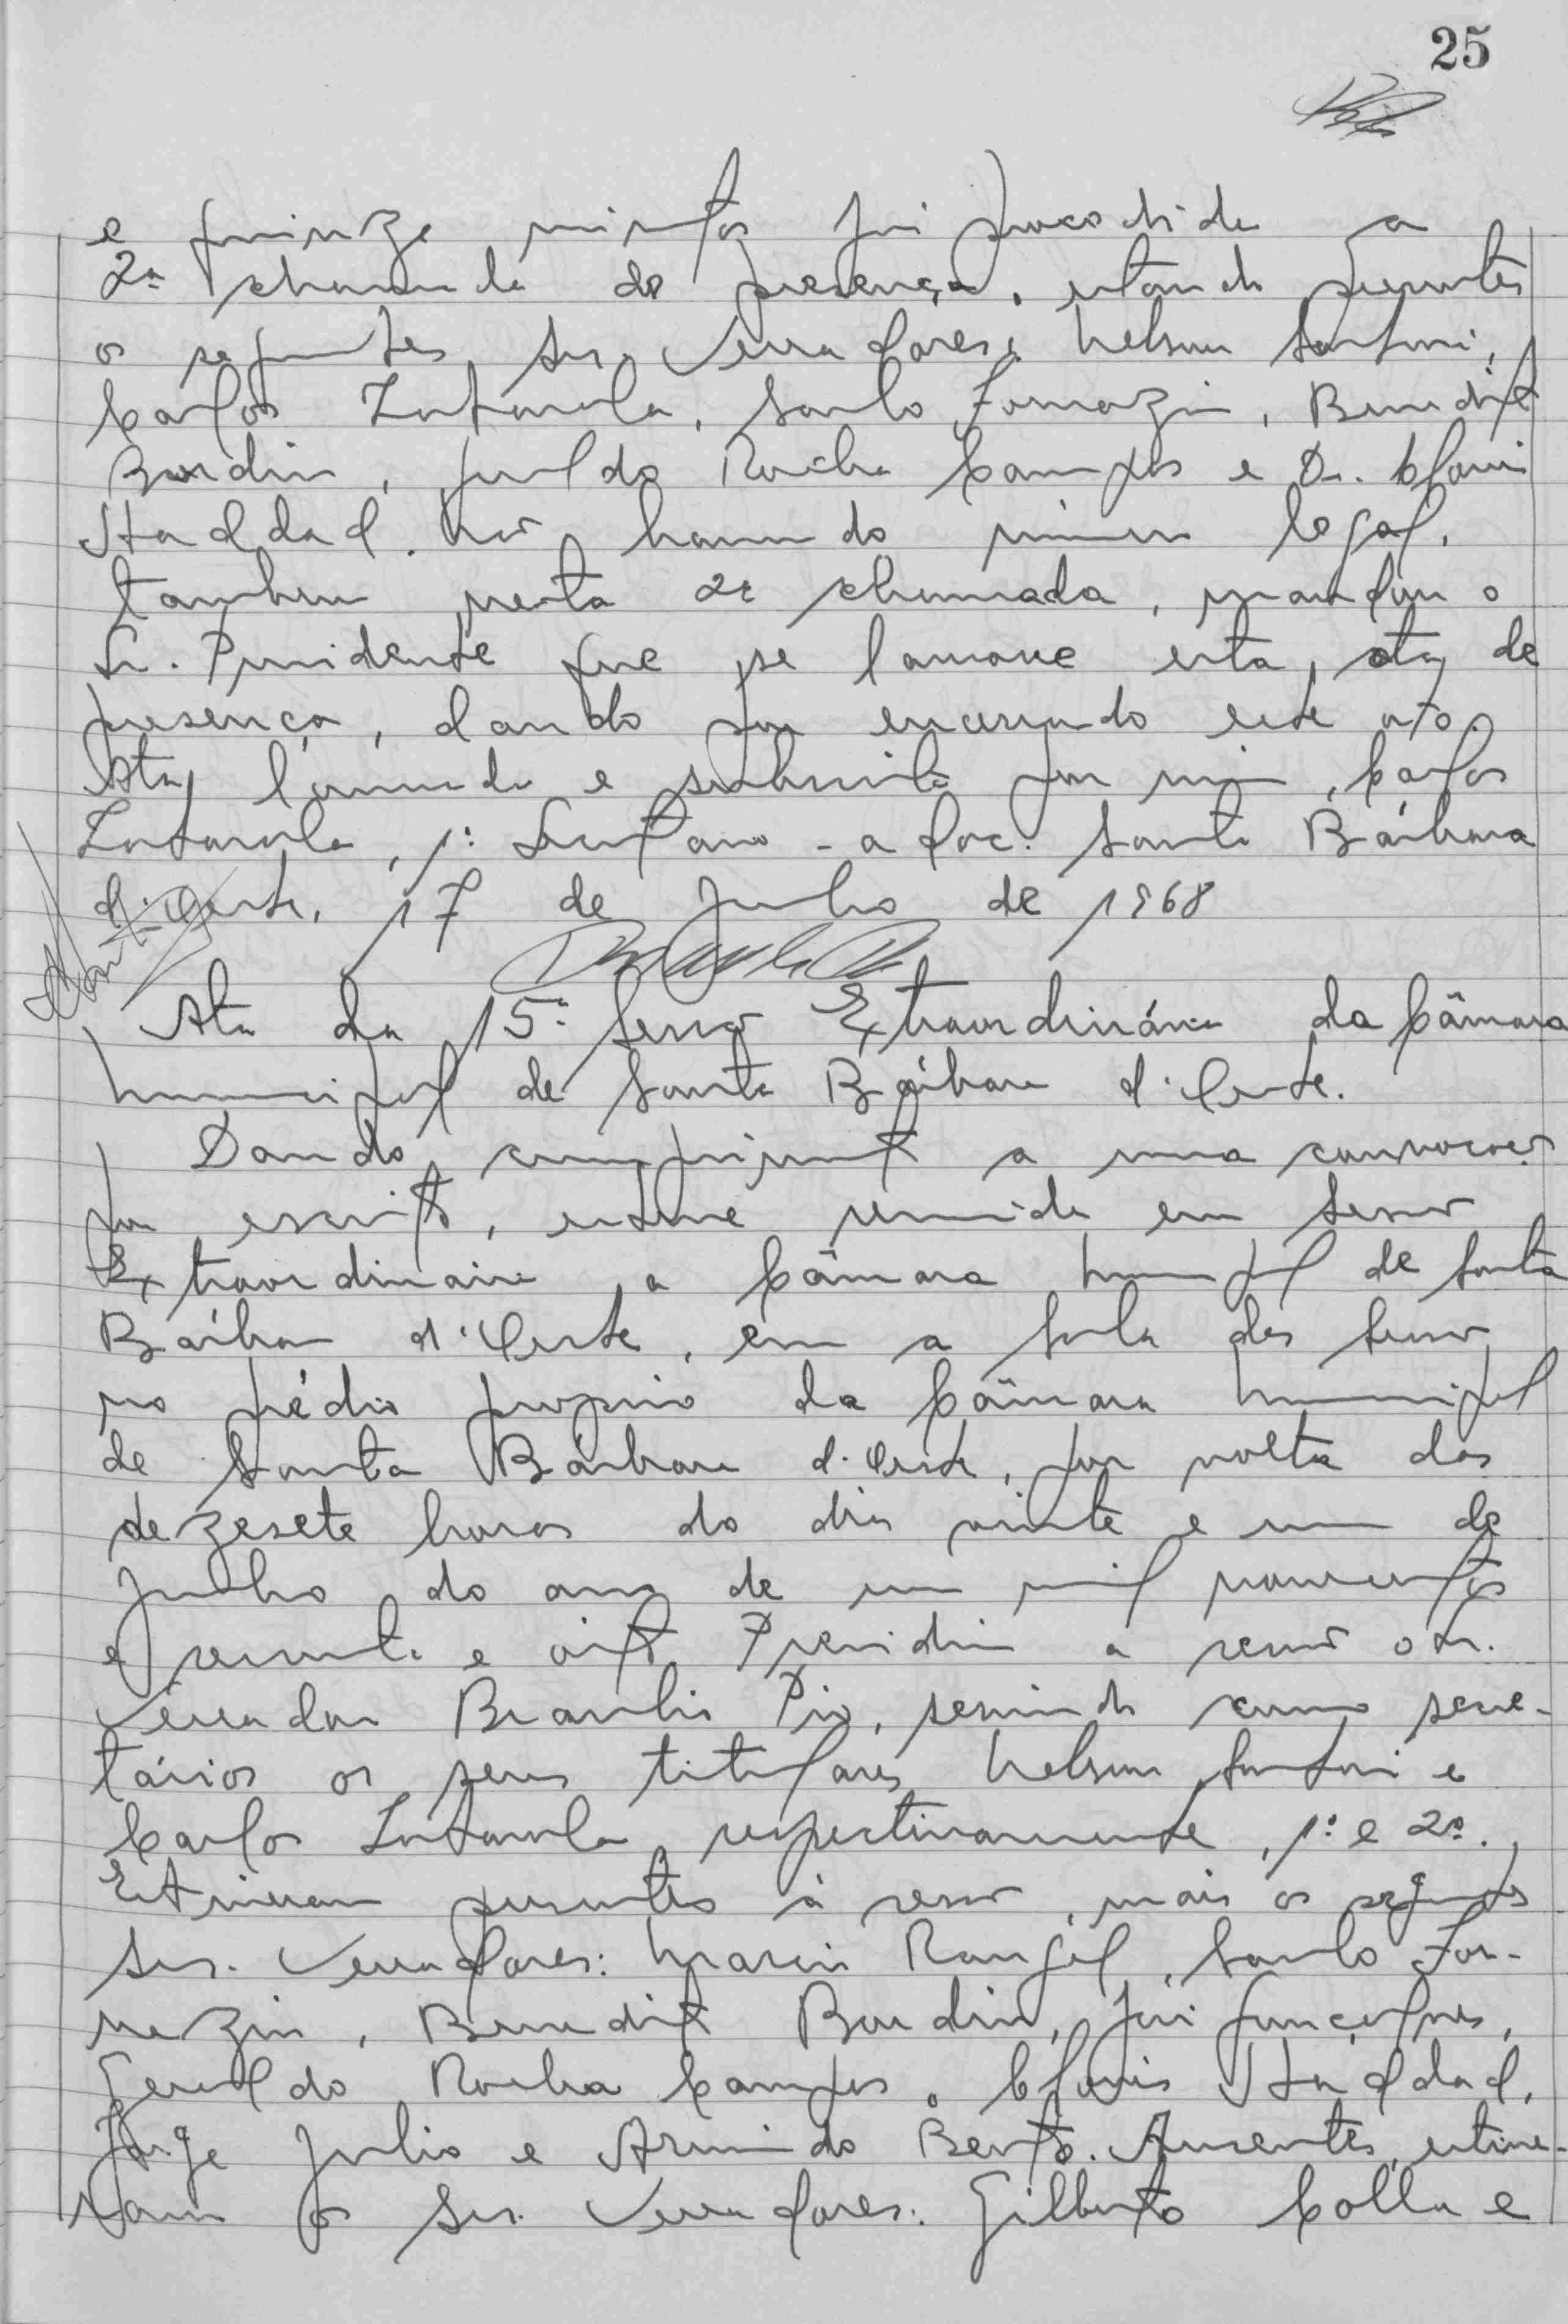 25
e quinze minutos foi procedida a
2ª chamada de presença, estando presentes
os seguintes Srs. Vereadores: Nelson Santoni,
Carlos Lutarola, Santo Fornazin, Benedito
Bordin, Geraldo Rocha Campos e Dr. Clovis
Haddad. Não havendo número legal,
tambem nesta 2ª chamada, mandou o
Sr. Presidente que se lavrasse esta ata de
presença, dando por encerrado este ato.
Ata lavrada e subscrita por mim, Carlos
Lutarola, 1º Secretario - adoc. Santa Bárbara
d'Oeste, 17 de Julho de 1968
Ata da 15ª Sessão Extraordinária da Câmara
Municipal de Santa Bárbara d'Oeste.
Dando cumprimento a uma convocação
por escrito, esteve reunida em Sessão
Extraordinaria a Câmara Municipal de Santa
Bárbara d'Oeste, em a Sala das Sessões
no prédio proprio da Câmara Municipal
de Santa Bárbara d'Oeste, por volta das
dezesete horas do dia vinte e um de
Julho do ano de um mil novecentos
e sessenta e oito. Presidiu a sessão o Sr.
Vereador Braulio Pio, servindo como secre-
tários os seus titulares Nelson Santoni e
Carlos Lutarola respectivamente, 1º e 2º.
Estiveram presentes à sessão, mais os seguintes
Srs. Vereadores: Marcio Rangel, Santo For-
nazin, Benedito Bordin, José Gonçalves,
Geraldo Rocha Campos, Clovis Haddad,
Jorge Julio e Armindo Bento. Ausentes, estive-
ram os Srs. Vereadores: Gilberto Colla e